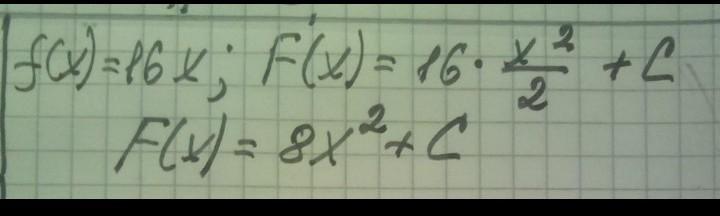 f(x)=16x; F(x)= 16· x²/2 +C
F(x)= 8x²+C